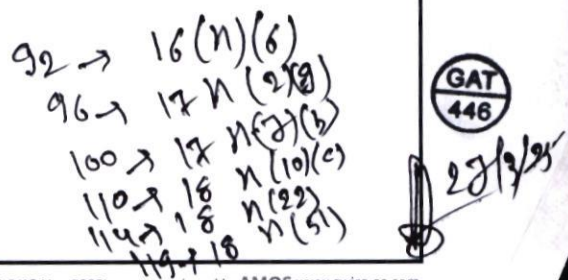 92 → 16 (n) (6)
96 → 17 n (2)(g)
100 → 17 n (7) (b)
110 → 18 n (10) (c)
114 → 18 n (22)
119 → 18 n (51)
GAT
446
27/3/25
AMOS